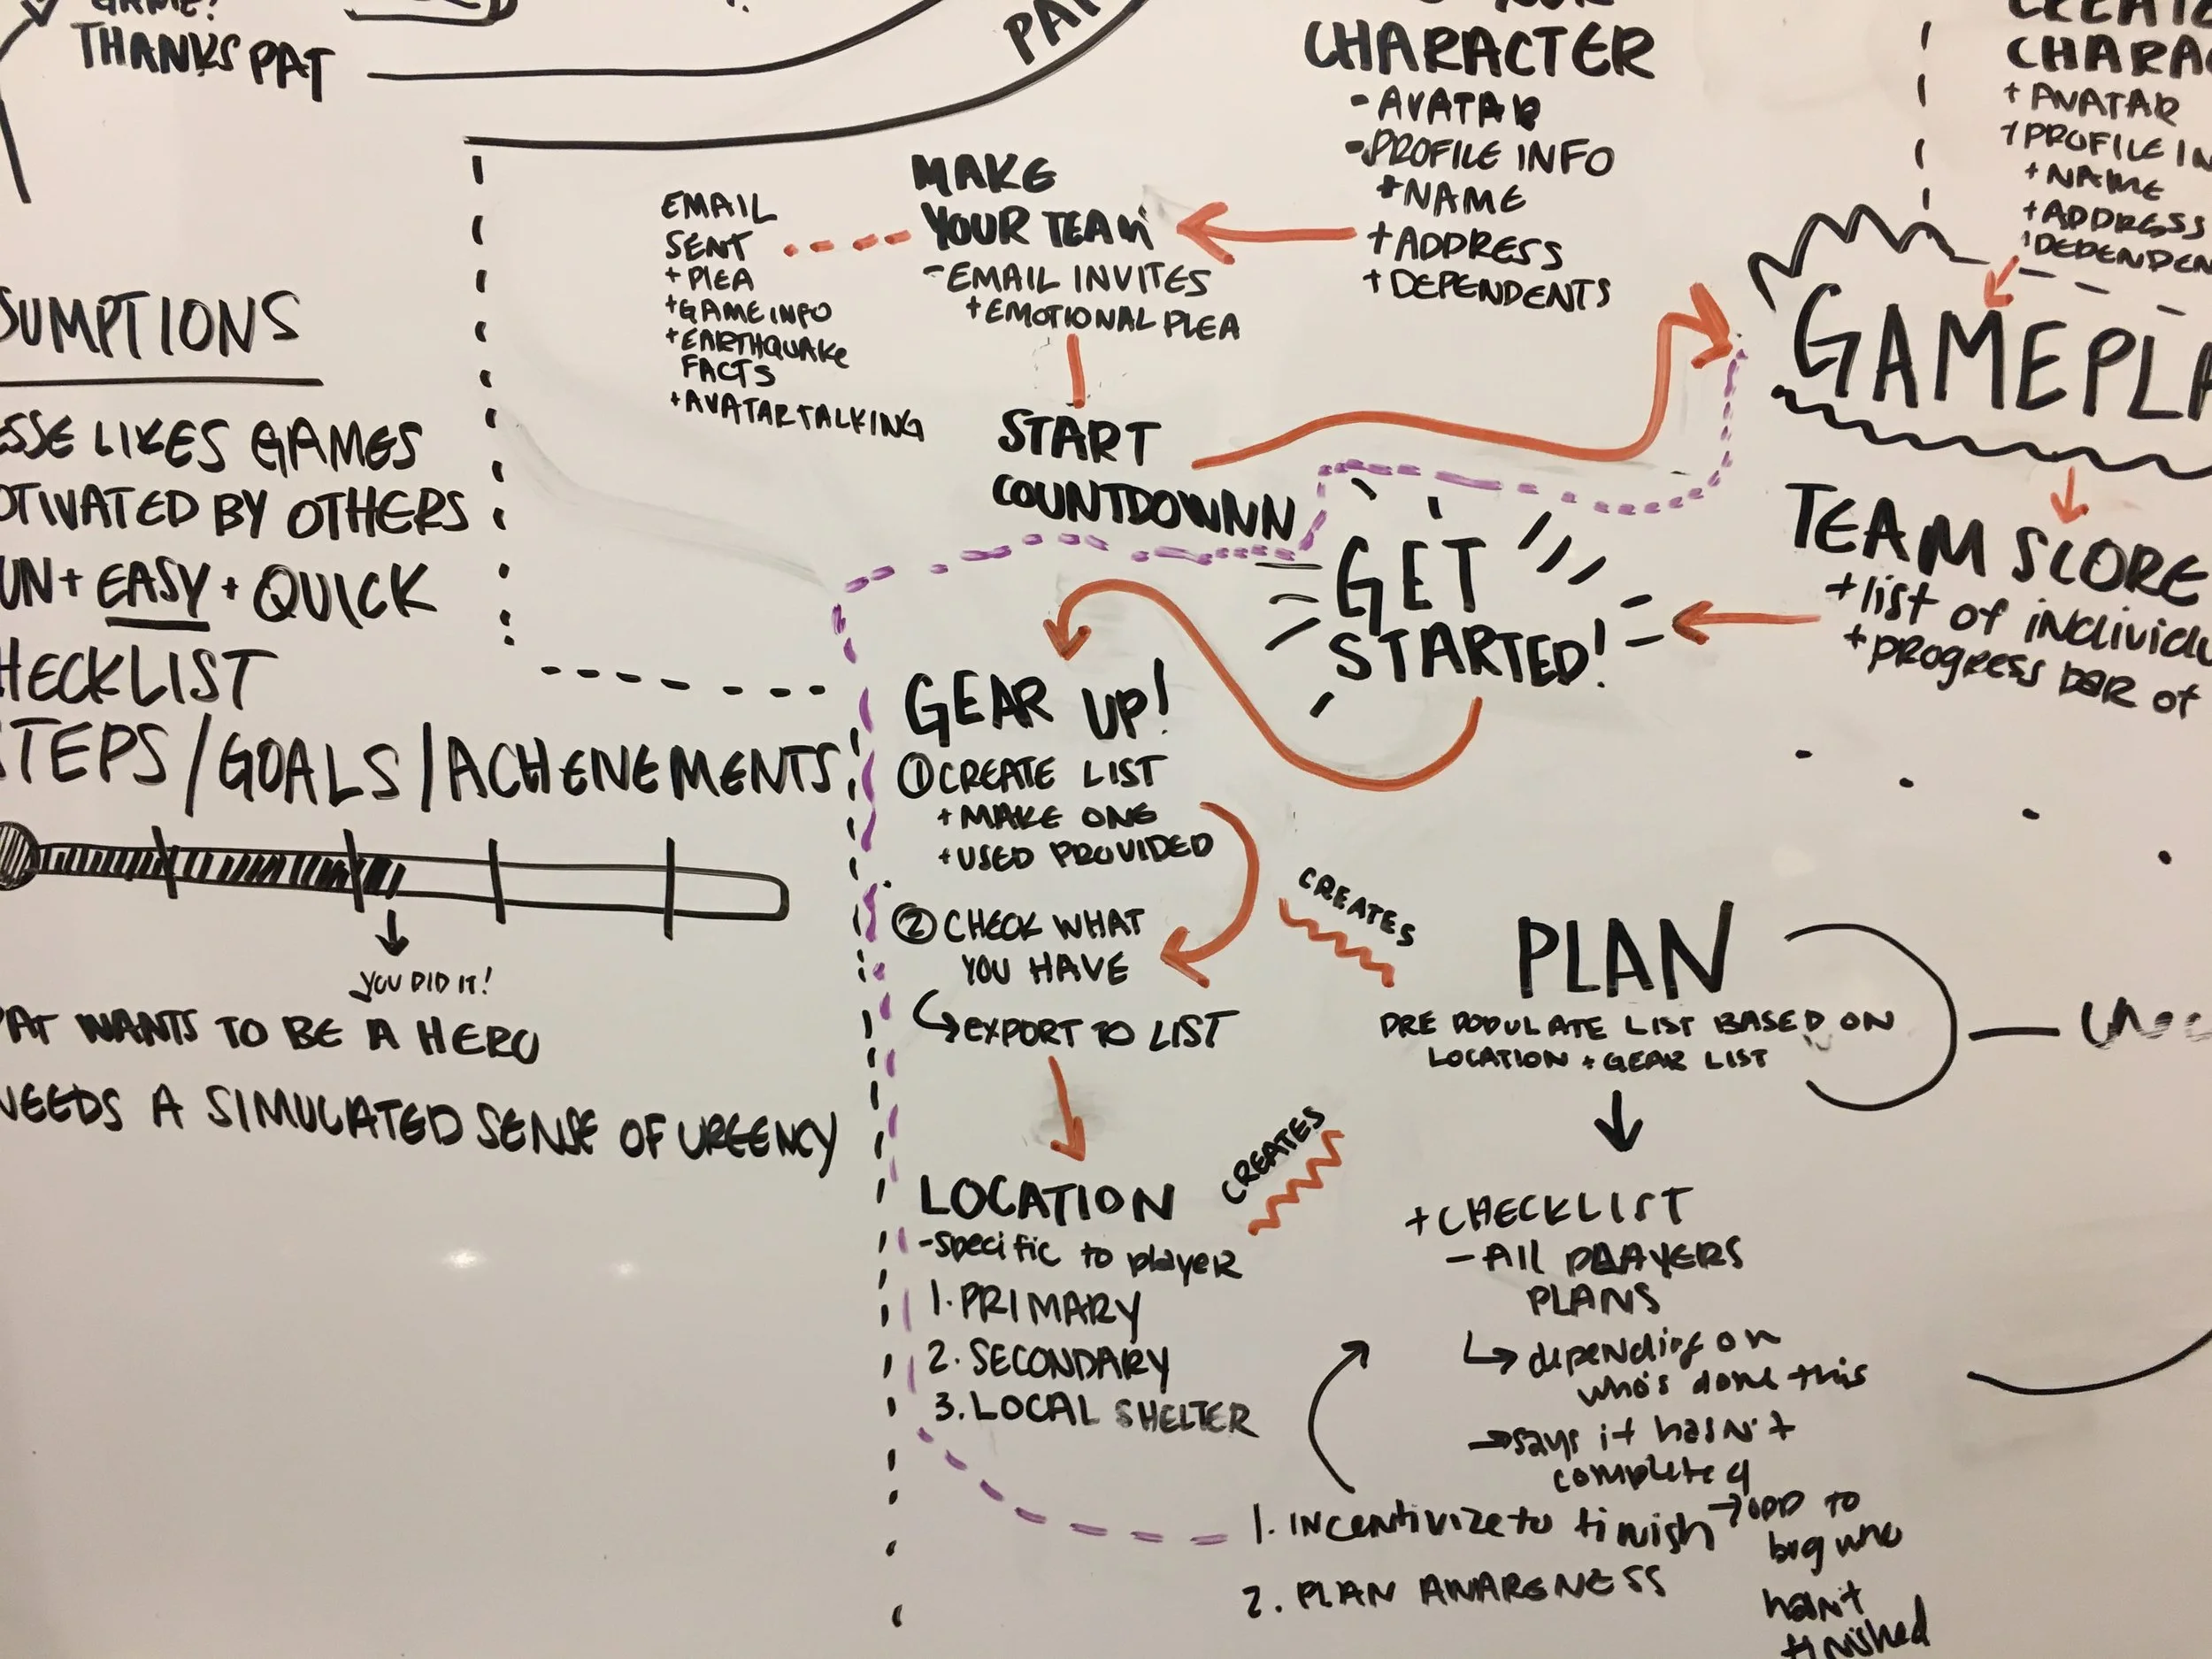 GAME!
THANKS PAT
SUMPTIONS
ESSE LIKES GAMES
OTIVATED BY OTHERS
UN + EASY + QUICK
HECKLIST
STEPS/GOALS/ACHIENEMENTS
YOU DID IT!
PAT WANTS TO BE A HERO
NEEDS A SIMULATED SENSE OF URGENCY
EMAIL
SENT
+ PLEA
+ GAME INFO
+ EARTHQUAKE
FACTS
+ AVATAR TALKING
MAKE
YOUR TEAM
- EMAIL INVITES
+ EMOTIONAL PLEA
START
COUNTDOWNN
CHARACTER
- AVATAR
- PROFILE INFO
+ NAME
+ ADDRESS
+ DEPENDENTS
CHARAC
+ AVATAR
+ PROFILE IN
+ NAME
+ ADDRESS
+ DEPENDEN
GAMEPLA
TEAM SCORE
+ list of individu
+ progress bar of
GET
STARTED!
GEAR UP!
① CREATE LIST
+ MAKE ONE
+ USED PROVIDED
② CHECK WHAT
YOU HAVE
EXPORT TO LIST
LOCATION
- specific to player
1. PRIMARY
2. SECONDARY
3. LOCAL SHELTER
CREATES
CREATES
PLAN
PRE POPULATE LIST BASED ON
LOCATION + GEAR LIST
+ CHECKLIST
- All PLAYERS
PLANS
depending on
who's done this
says it hasn't
completed
1. Incentivize to finish → ADD TO
bug who
hasn't
finished
2. PLAN AWARENESS